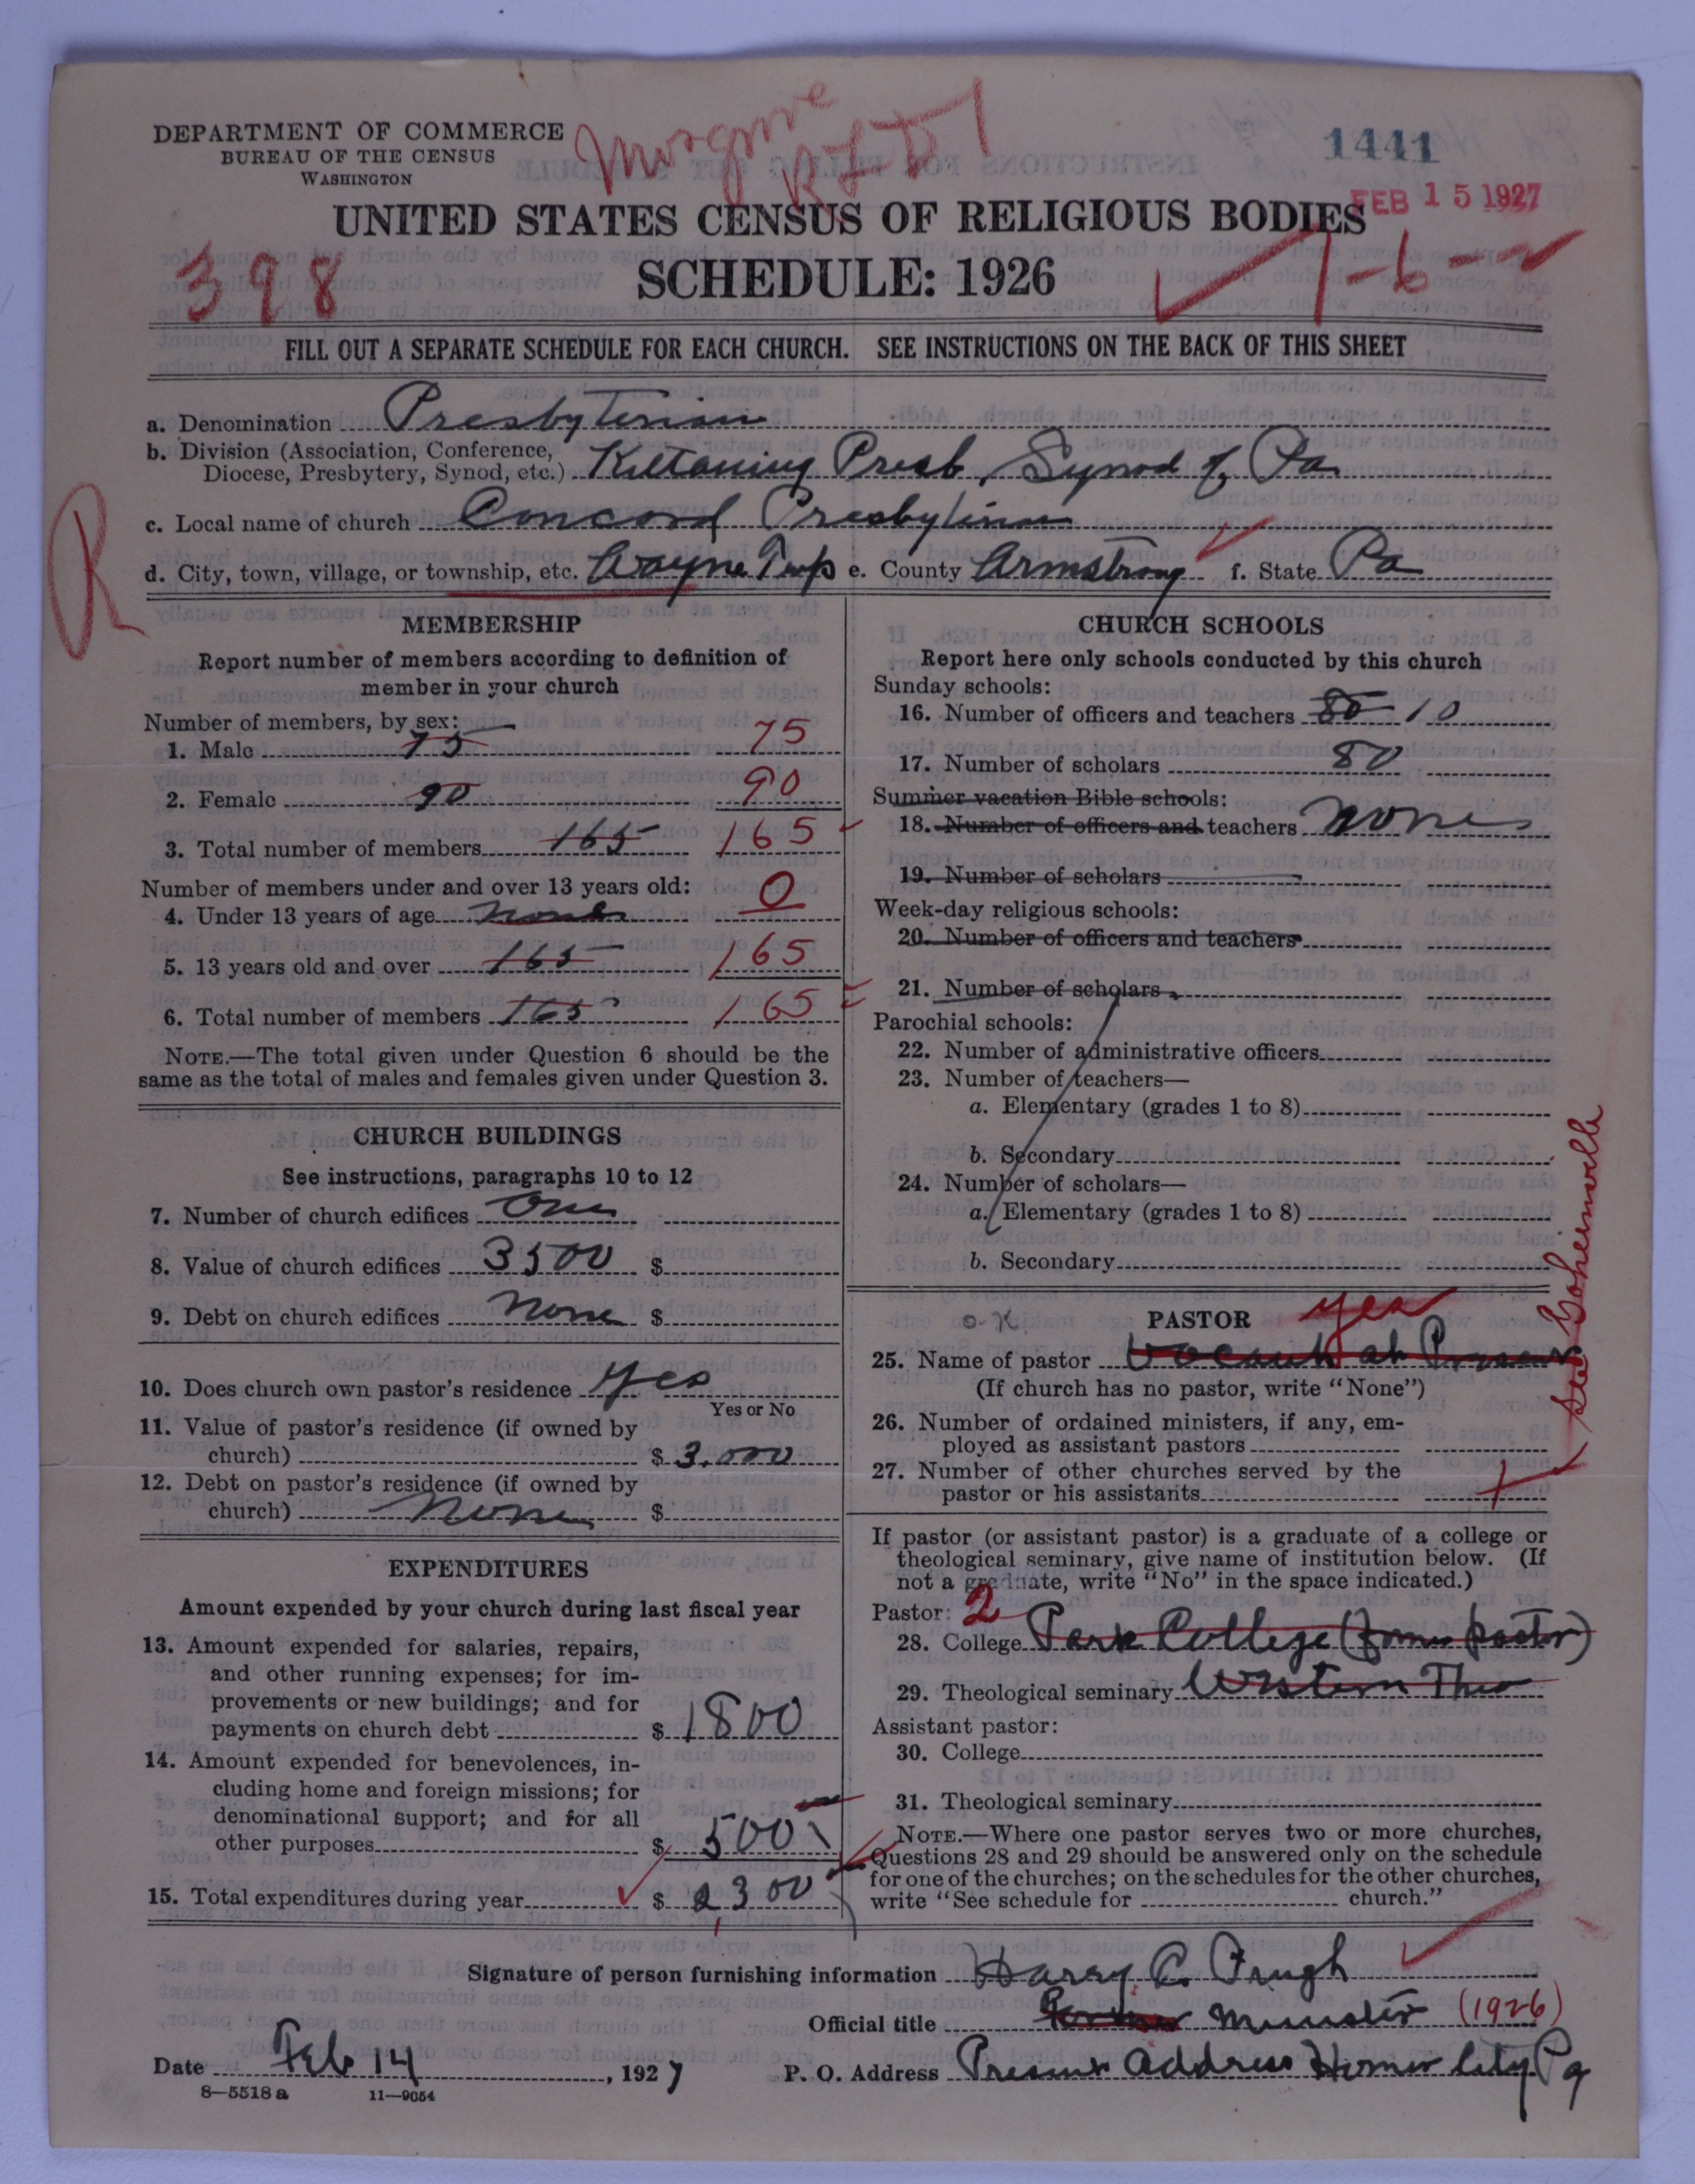 DEPARTMENT OF COMMERCE
BUREAU OF THE CENSUS
WASHINGTON
R F D 1
1441
FEB 15 1927
UNITED STATES CENSUS OF RELIGIOUS BODIES
398
SCHEDULE: 1926
1-6-2
FILL OUT A SEPARATE SCHEDULE FOR EACH CHURCH. SEE INSTRUCTIONS ON THE BACK OF THIS SHEET
a. Denomination Presbyterian
b. Division (Association, Conference,
Diocese, Presbytery, Synod, etc.) Kittaning Presb, Synod of Pa
c. Local name of church Concord Presbyterian
R
d. City, town, village, or township, etc. Wayne Twp e. County Armstrong f. State Pa
MEMBERSHIP
Report number of members according to definition of
member in your church
Number of members, by sex:
1. Male 75 75
2. Female 90 90
3. Total number of members 165 165
Number of members under and over 13 years old:
4. Under 13 years of age none 0
5. 13 years old and over 165 165
6. Total number of members 165 165
NOTE.—The total given under Question 6 should be the
same as the total of males and females given under Question 3.
CHURCH BUILDINGS
See instructions, paragraphs 10 to 12
7. Number of church edifices One
8. Value of church edifices 3500 $
9. Debt on church edifices None $
10. Does church own pastor's residence Yes
Yes or No
11. Value of pastor's residence (if owned by
church) $ 3,000
12. Debt on pastor's residence (if owned by
church) None $
EXPENDITURES
Amount expended by your church during last fiscal year
13. Amount expended for salaries, repairs,
and other running expenses; for im-
provements or new buildings; and for
payments on church debt $ 1800
14. Amount expended for benevolences, in-
cluding home and foreign missions; for
denominational support; and for all
other purposes $ 500
15. Total expenditures during year $ 2300
CHURCH SCHOOLS
Report here only schools conducted by this church
Sunday schools:
16. Number of officers and teachers 80 10
17. Number of scholars 80
Summer vacation Bible schools:
18. Number of officers and teachers None
19. Number of scholars
Week-day religious schools:
20. Number of officers and teachers
21. Number of scholars
Parochial schools:
22. Number of administrative officers
23. Number of teachers—
a. Elementary (grades 1 to 8)
b. Secondary
24. Number of scholars—
a. Elementary (grades 1 to 8)
b. Secondary
O.K. PASTOR yes
25. Name of pastor Vacant at Present
(If church has no pastor, write "None")
26. Number of ordained ministers, if any, em-
ployed as assistant pastors
27. Number of other churches served by the
pastor or his assistants
see Goheenville
If pastor (or assistant pastor) is a graduate of a college or
theological seminary, give name of institution below. (If
not a graduate, write "No" in the space indicated.)
Pastor: 2
28. College Park College (former pastor)
29. Theological seminary Western Theo
Assistant pastor:
30. College
31. Theological seminary
NOTE.—Where one pastor serves two or more churches,
Questions 28 and 29 should be answered only on the schedule
for one of the churches; on the schedules for the other churches,
write "See schedule for church."
Signature of person furnishing information Harry C. Prugh
Official title Former Minister (1926)
Date Feb 14, 1927 P. O. Address Present Address Homer City Pa
8—5518 a 11—9054